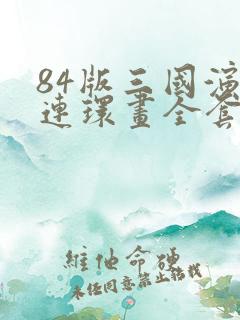 84版三國演
連環畫全套
維他命硬
未经同意禁止转载